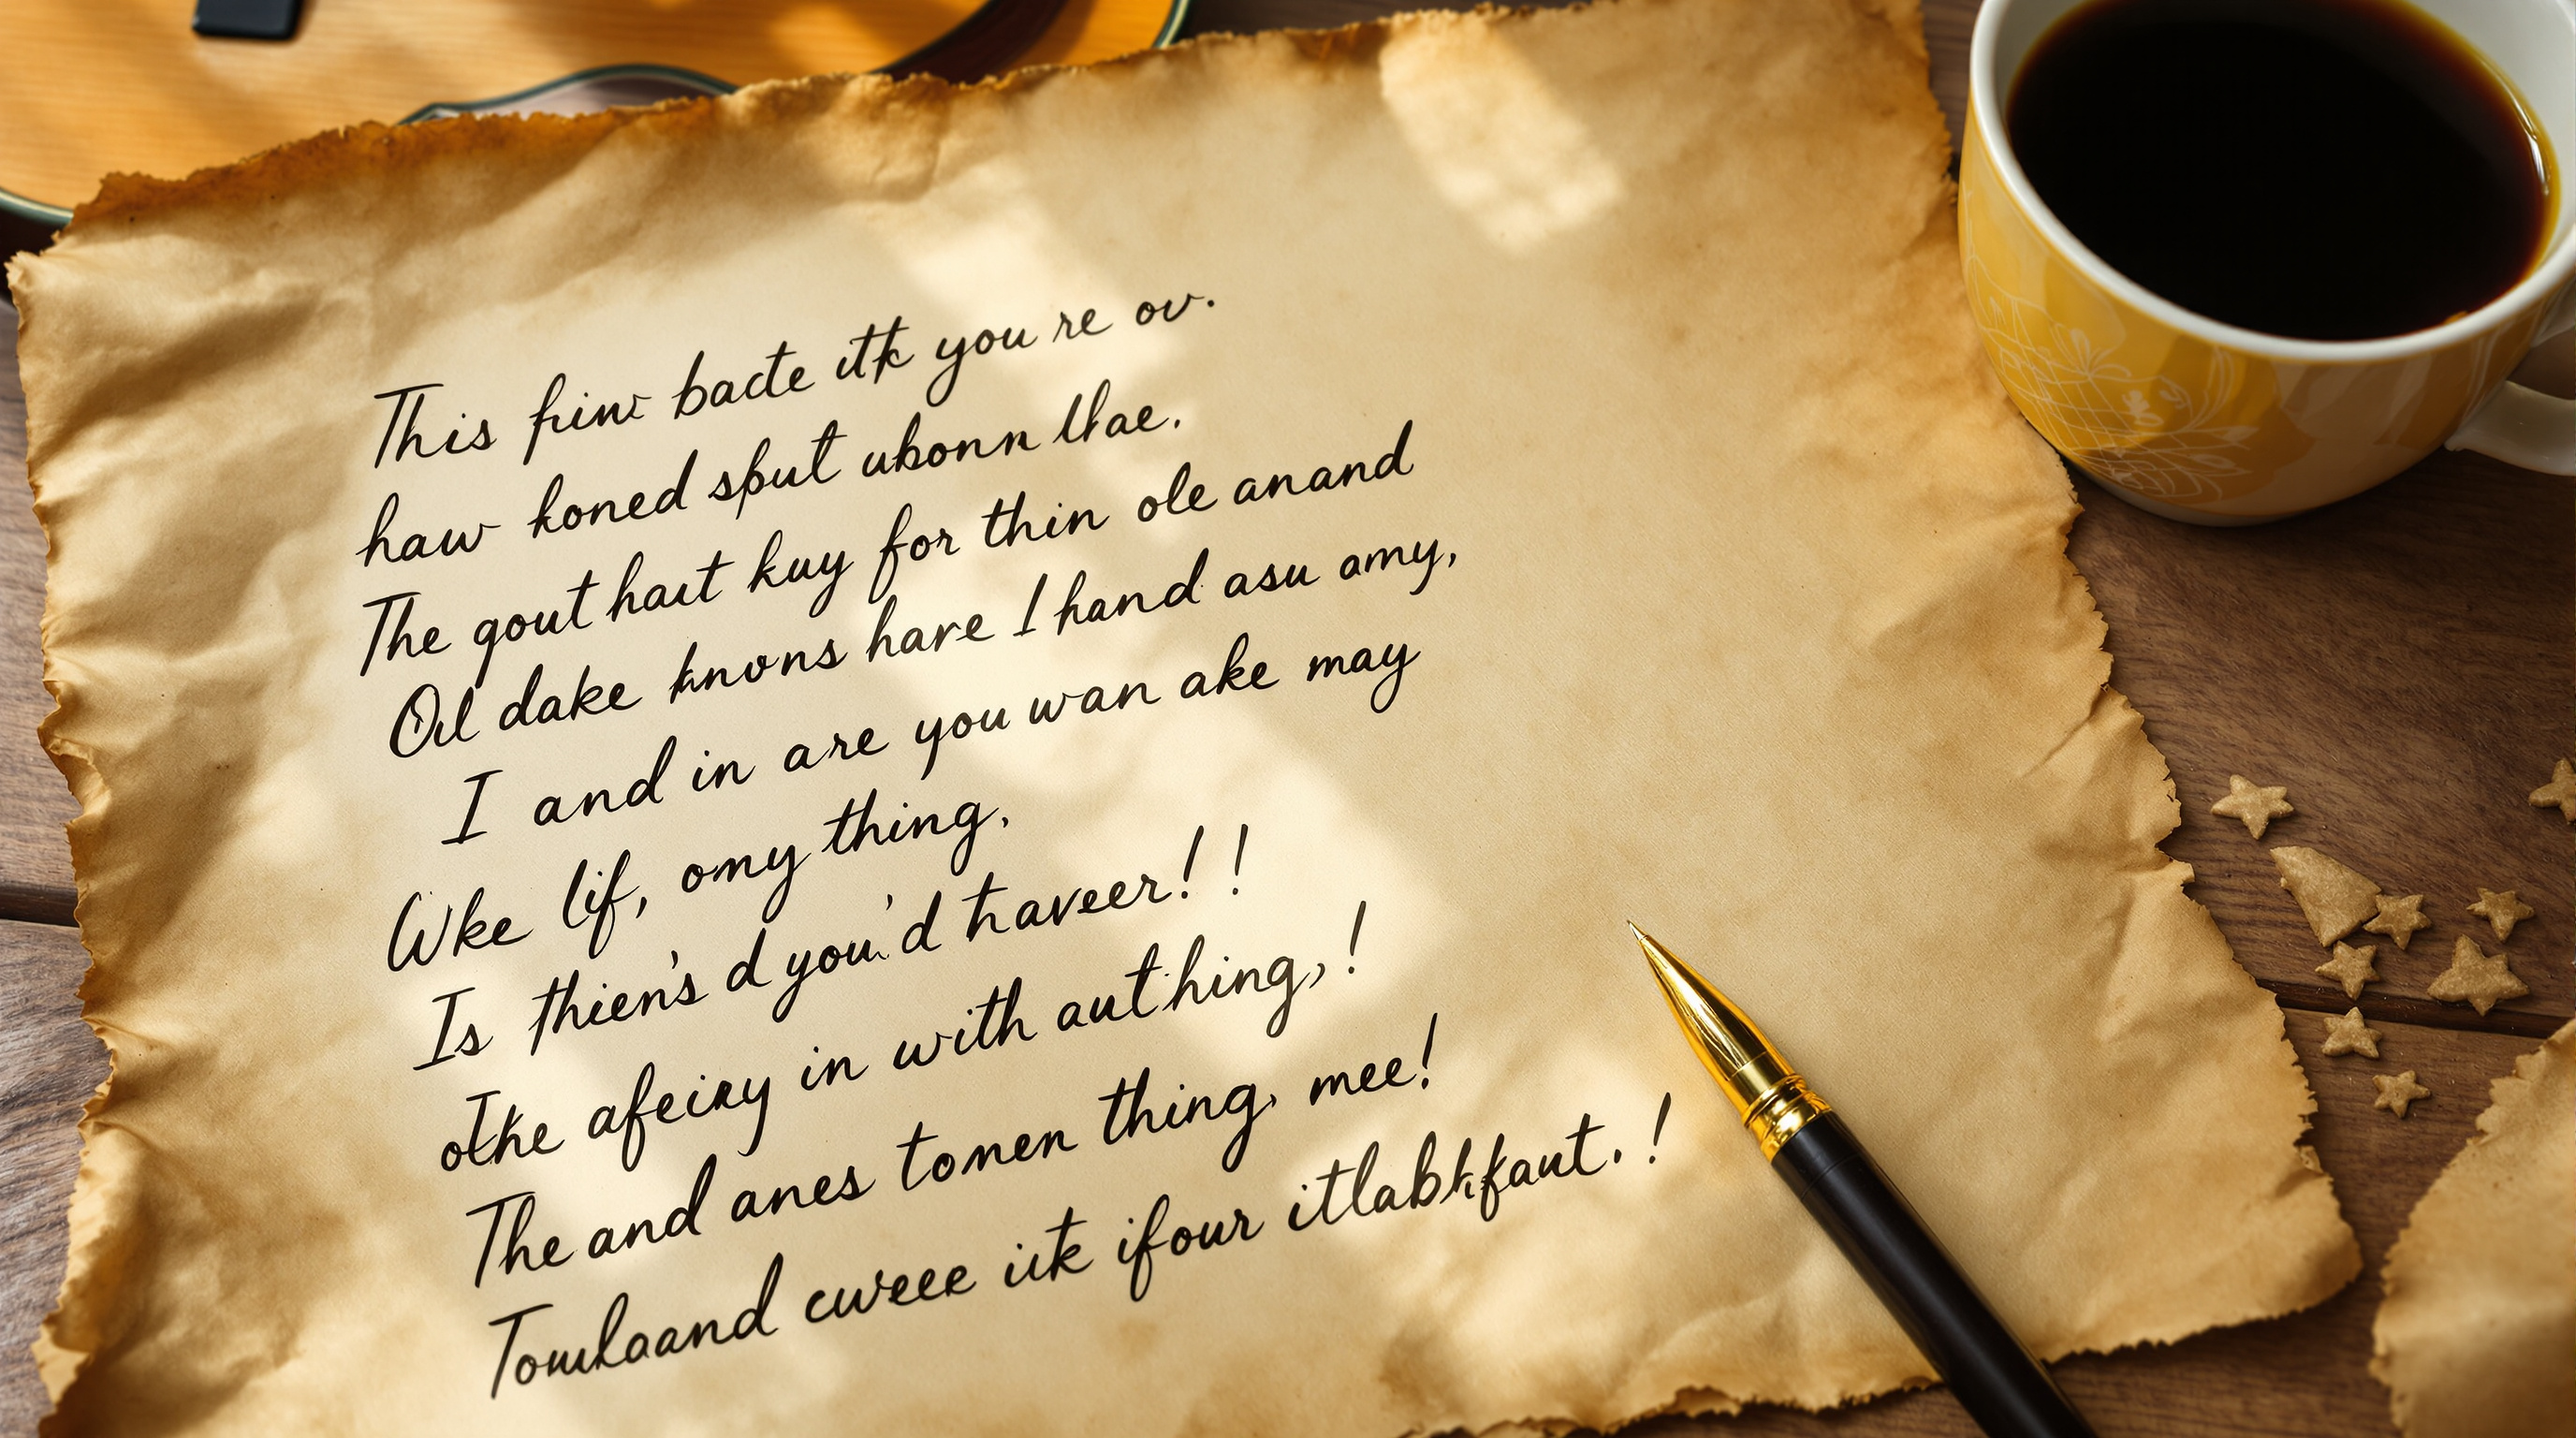 This finw bacte itk you re ov.
haw koned sput ubonn llae.
The gout hait kuy for thin ole anand
Oil dake knons hare I hand asu amy,
I and in are you wan ake may
Wke lif, omy thing.
Is thien's d you'd haveer! !
othe afeiry in with authing, !
The and anes tomen thing, mee!
Tomlaand cweee iitk ifour itlabkfaut. !